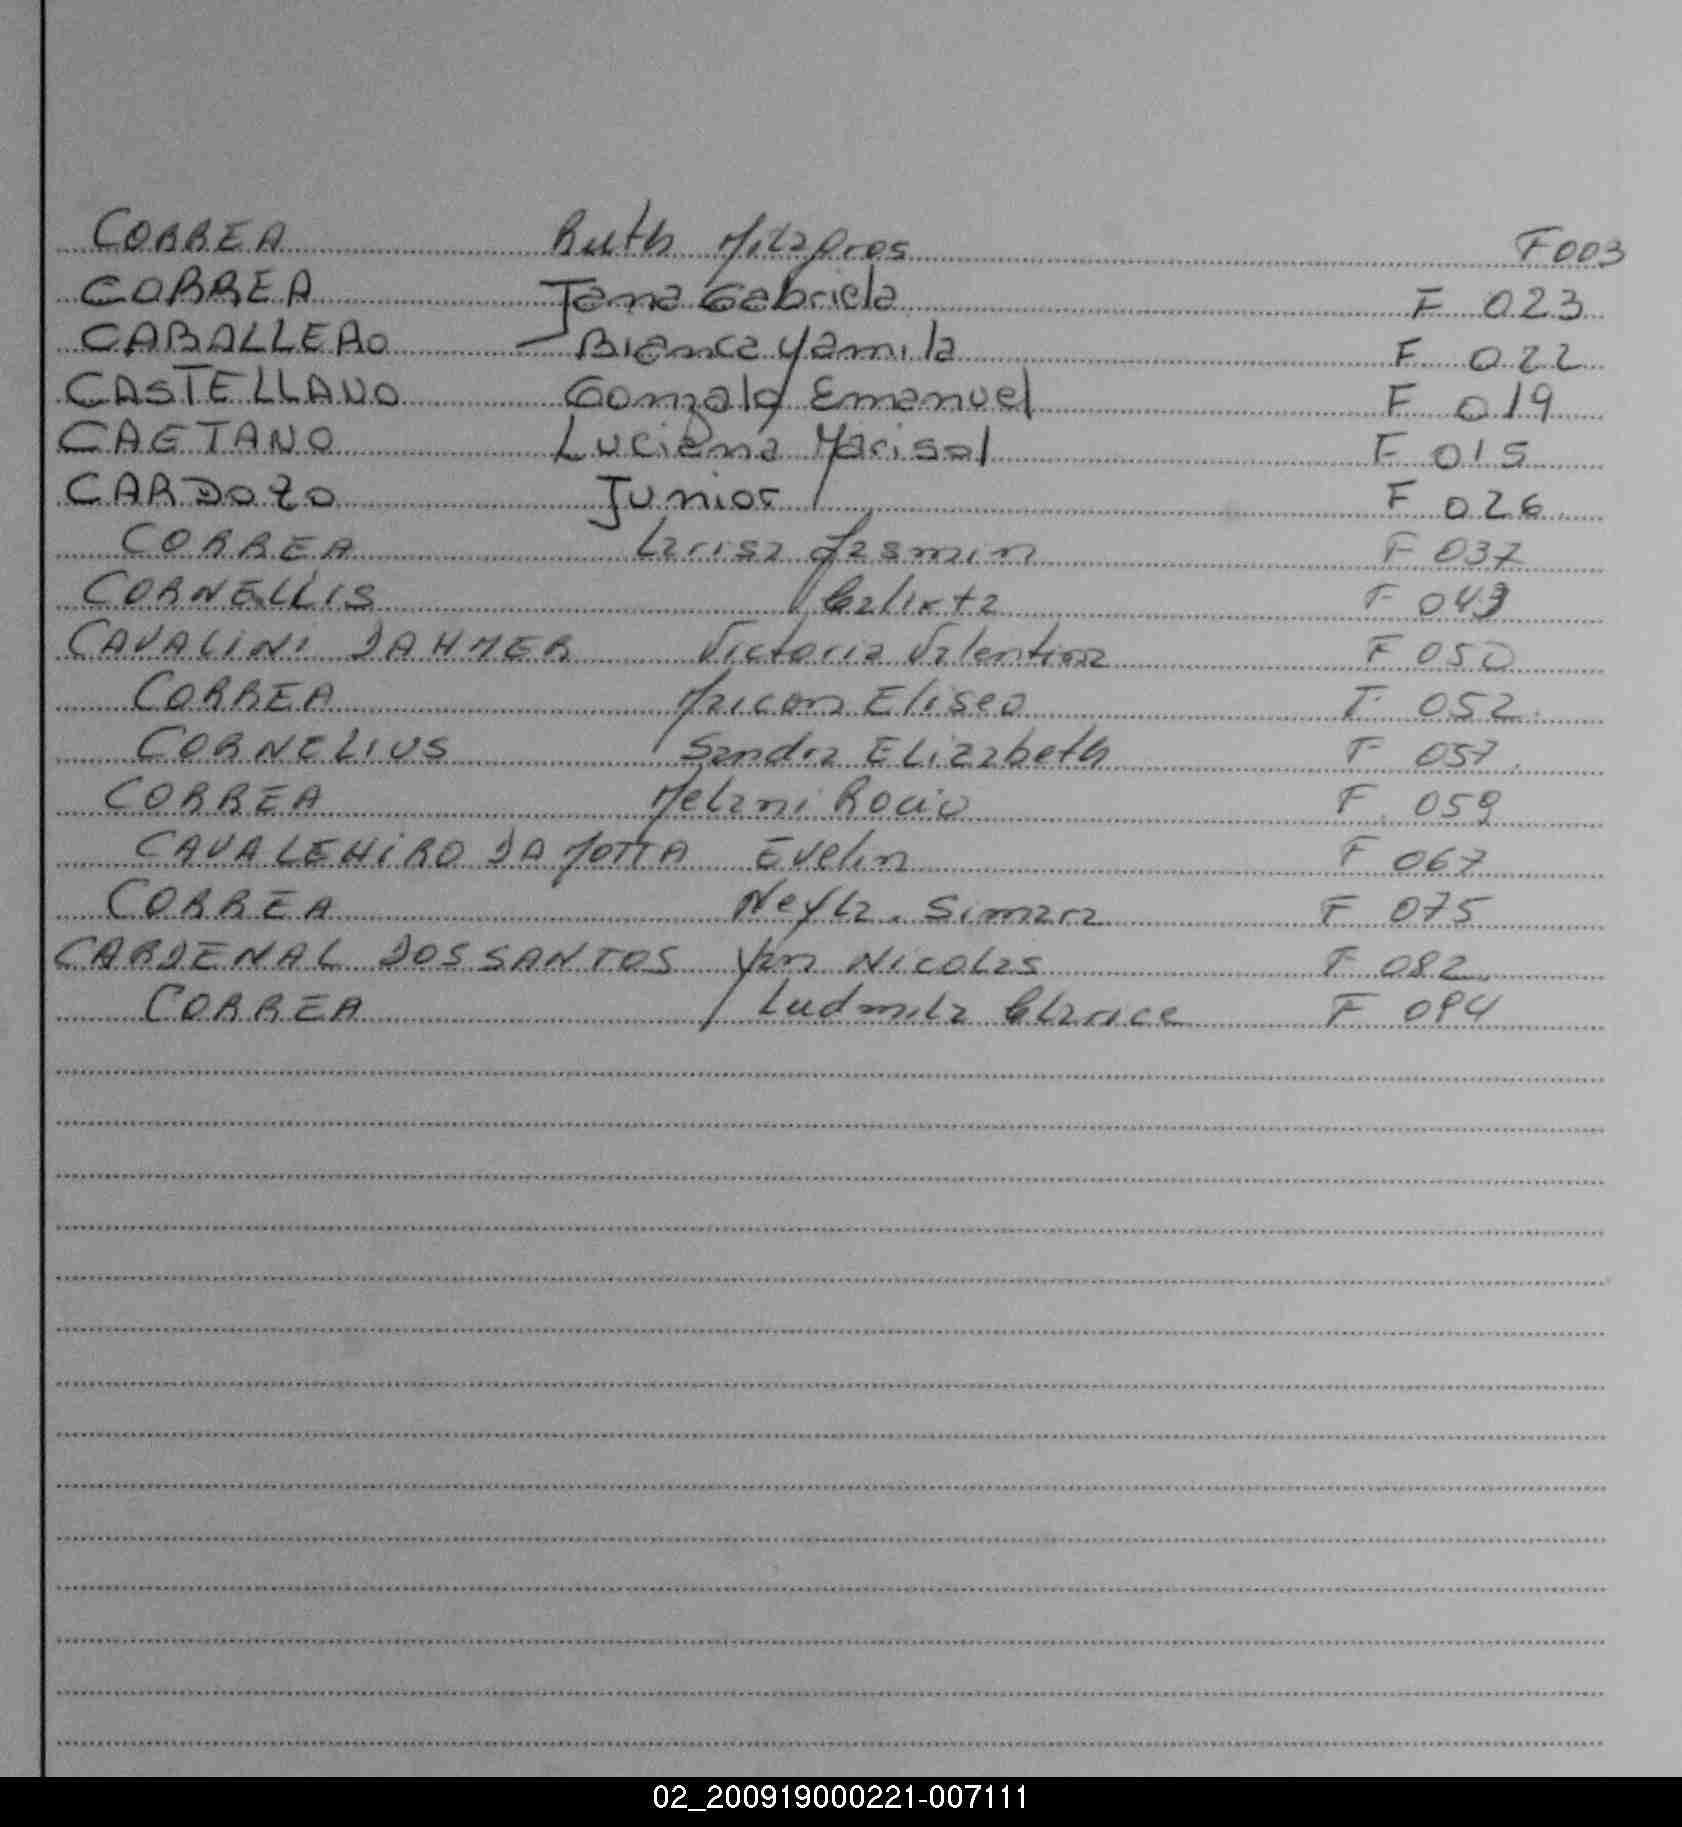 CORREA Ruth Milagros F003
CORREA Jana Gabriela F 023
CABALLERO Bianca Yamila F 022
CASTELLANO Gonzalo Emanuel F 019
CAETANO Luciana Marisol F 015
CARDOZO Junior F 026
CORREA Larisa Jasmin F 037
CORNELLIS Calixta F 049
CAVALINI DAHMER Victoria Valentina F 050
CORREA Maicon Eliseo F 052
CORNELIUS Sandra Elizabeth F 057
CORREA Melani Rocio F 059
CAVALEHIRO DA MOTTA Evelin F 067
CORREA Neyla Simara F 075
CARDENAL DOS SANTOS Yan Nicolas F 082
CORREA Ludmila Clarice F 084
02_200919000221-007111